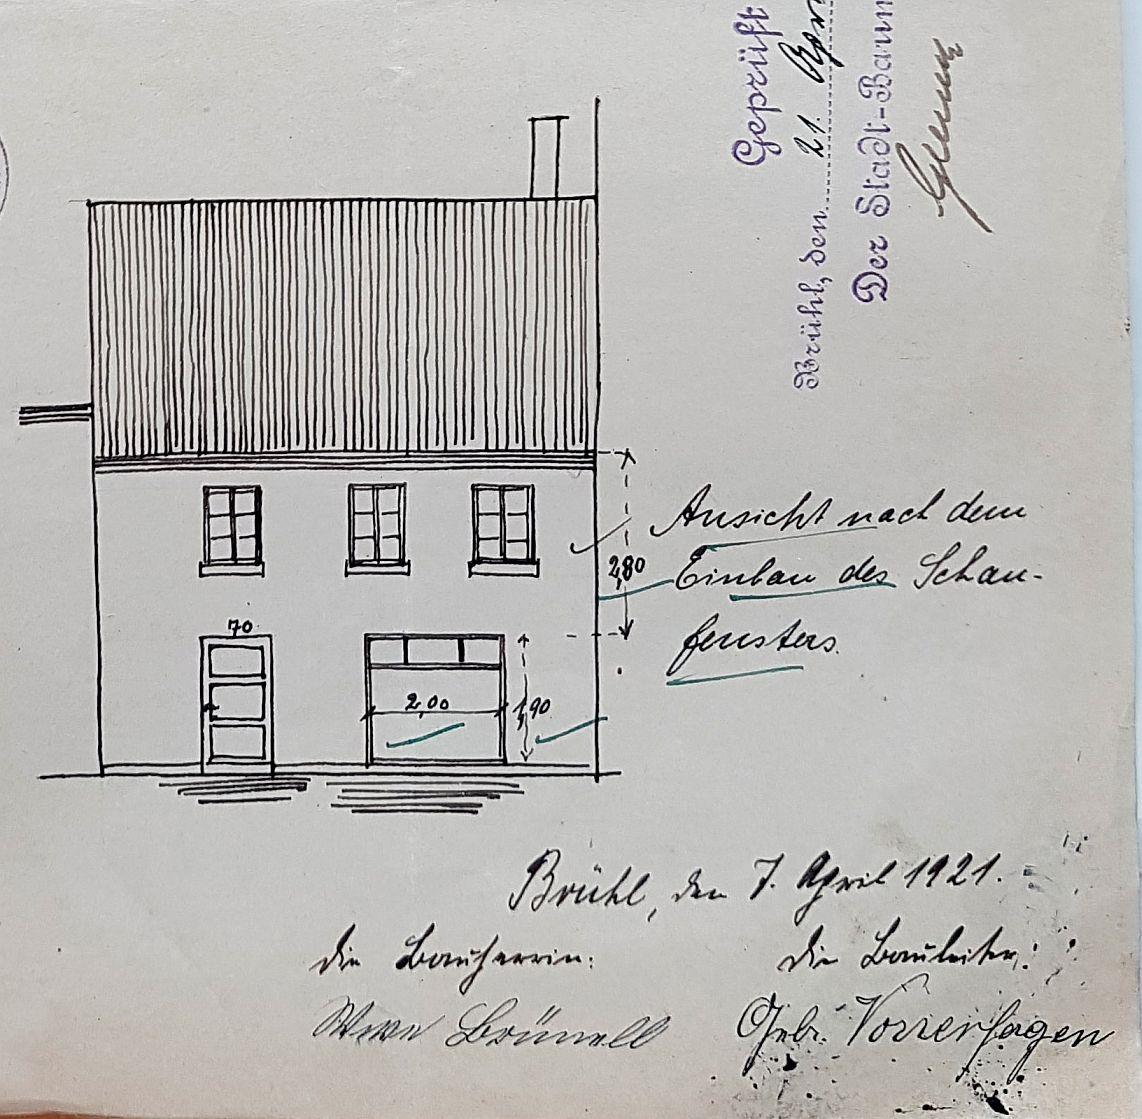 Geprüft
Brühl, den 21. Apri
Der Stadt-Baum
Ansicht nach dem
Einbau des Schau-
fensters.
2,80
70
2,00
1,90
Brühl, den 7. April 1921.
die Bauherrin:
die Bauleiter:
Wwe Brünell
Gebr. Vorrenhagen